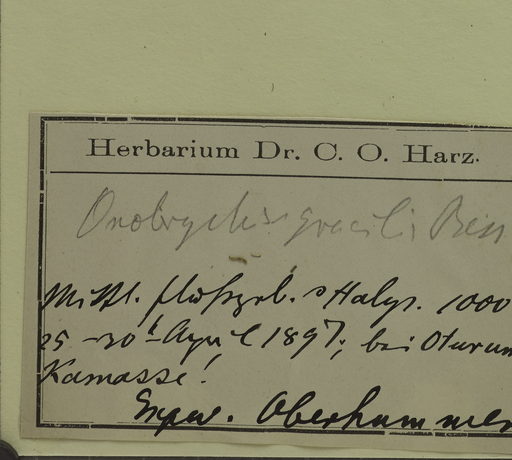 Herbarium Dr. C. O. Harz.
Onobrychis gracilis Bess
Mittl. flußgeb. d Halys. 1000
25-30t April 1897; bei Oturum
Kamasse!
Oberhummer